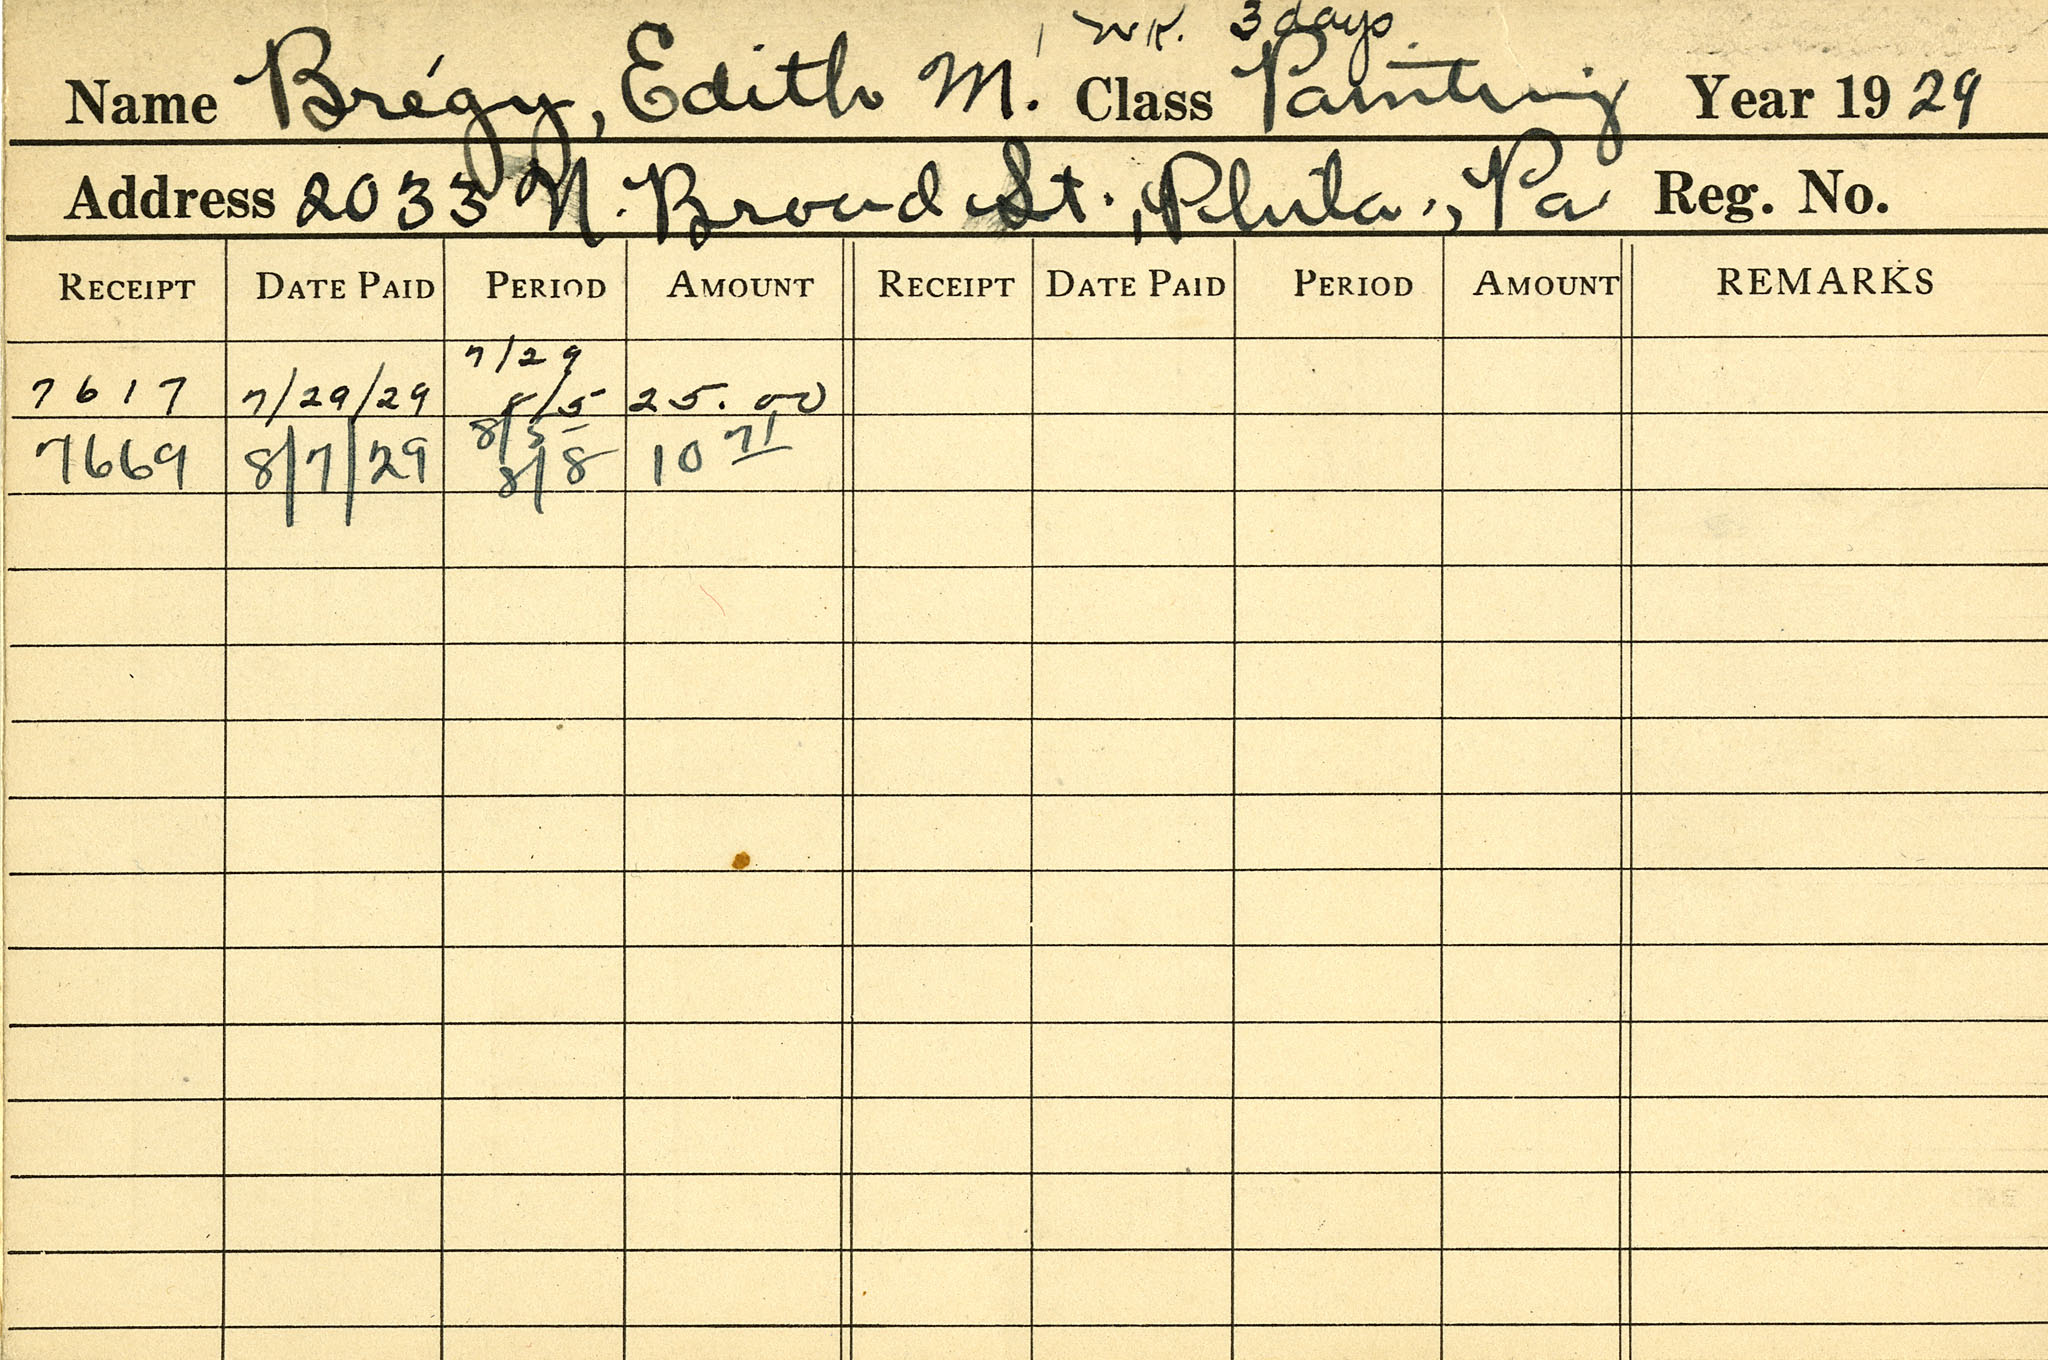 1 wk. 3 days
Name Brégy, Edith M. Class Painting Year 1929
Address 2033 N. Broad St., Phila., Pa Reg. No.
RECEIPT DATE PAID PERIOD AMOUNT RECEIPT DATE PAID PERIOD AMOUNT REMARKS
7/29
7617 7/29/29 8/5 25.00
8/5
7669 8/7/29 8/8 10 71